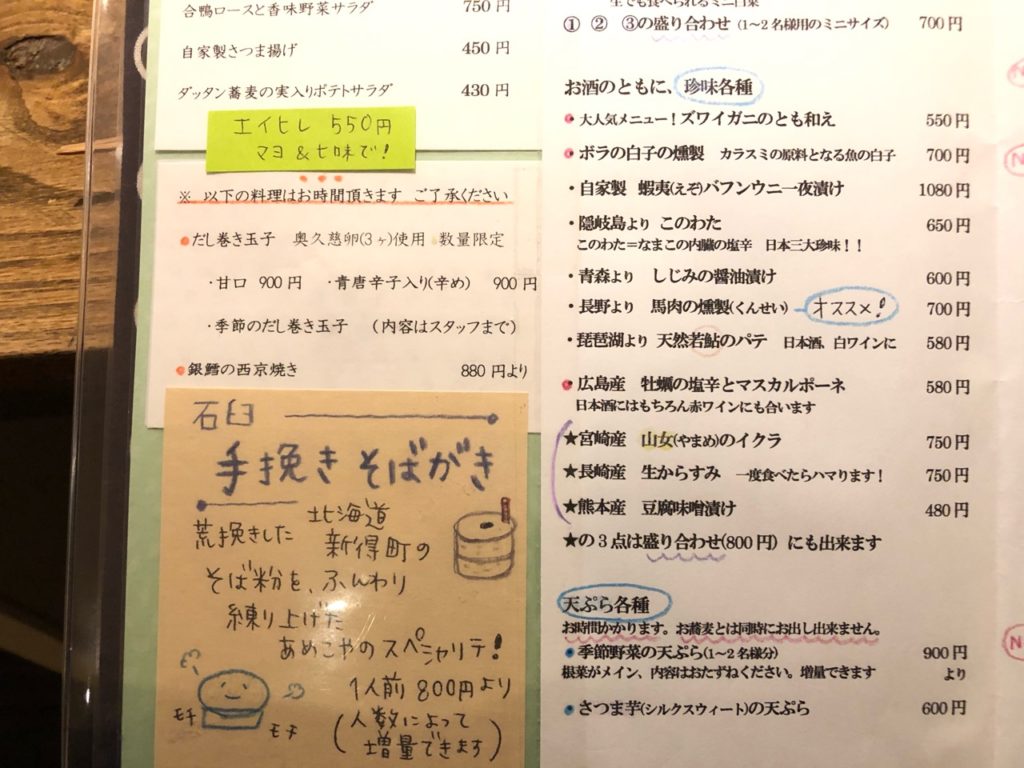 合鴨ロースと香味野菜サラダ 750円
自家製さつま揚げ 450円
ダッタン蕎麦の実入りポテトサラダ 430円
エイヒレ 550円
マヨ&七味で!
※ 以下の料理はお時間頂きます ご了承ください
だし巻き玉子 奥久慈卵(3ヶ)使用 数量限定
・甘口 900円 ・青唐辛子入り(辛め) 900円
・季節のだし巻き玉子 (内容はスタッフまで)
銀鱈の西京焼き 880円より
石臼
手挽きそばがき
荒挽きした 北海道
新得町の
そば粉を、ふんわり
練り上げた
あめこやのスペシャリテ!
1人前 800円より
(人数によって
増量できます)
モチ
モチ
生でも食べられるミニ白菜
① ② ③の盛り合わせ (1~2名様用のミニサイズ) 700円
お酒のともに、珍味各種
大人気メニュー!ズワイガニのとも和え 550円
ボラの白子の燻製 カラスミの原料となる魚の白子 700円
・自家製 蝦夷(えぞ)バフンウニ一夜漬け 1080円
・隠岐島より このわた 650円
このわた=なまこの内臓の塩辛 日本三大珍味!!
・青森より しじみの醤油漬け 600円
・長野より 馬肉の燻製(くんせい) オススメ! 700円
・琵琶湖より 天然若鮎のパテ 日本酒、白ワインに 580円
広島産 牡蠣の塩辛とマスカルポーネ 580円
日本酒にはもちろん赤ワインにも合います
★宮崎産 山女(やまめ)のイクラ 750円
★長崎産 生からすみ 一度食べたらハマります! 750円
★熊本産 豆腐味噌漬け 480円
★の3点は盛り合わせ(800円)にも出来ます
天ぷら各種
お時間かかります。お蕎麦とは同時にお出し出来ません。
季節野菜の天ぷら(1~2名様分) 900円
根菜がメイン、内容はおたずねください。増量できます より
さつま芋(シルクスウィート)の天ぷら 600円